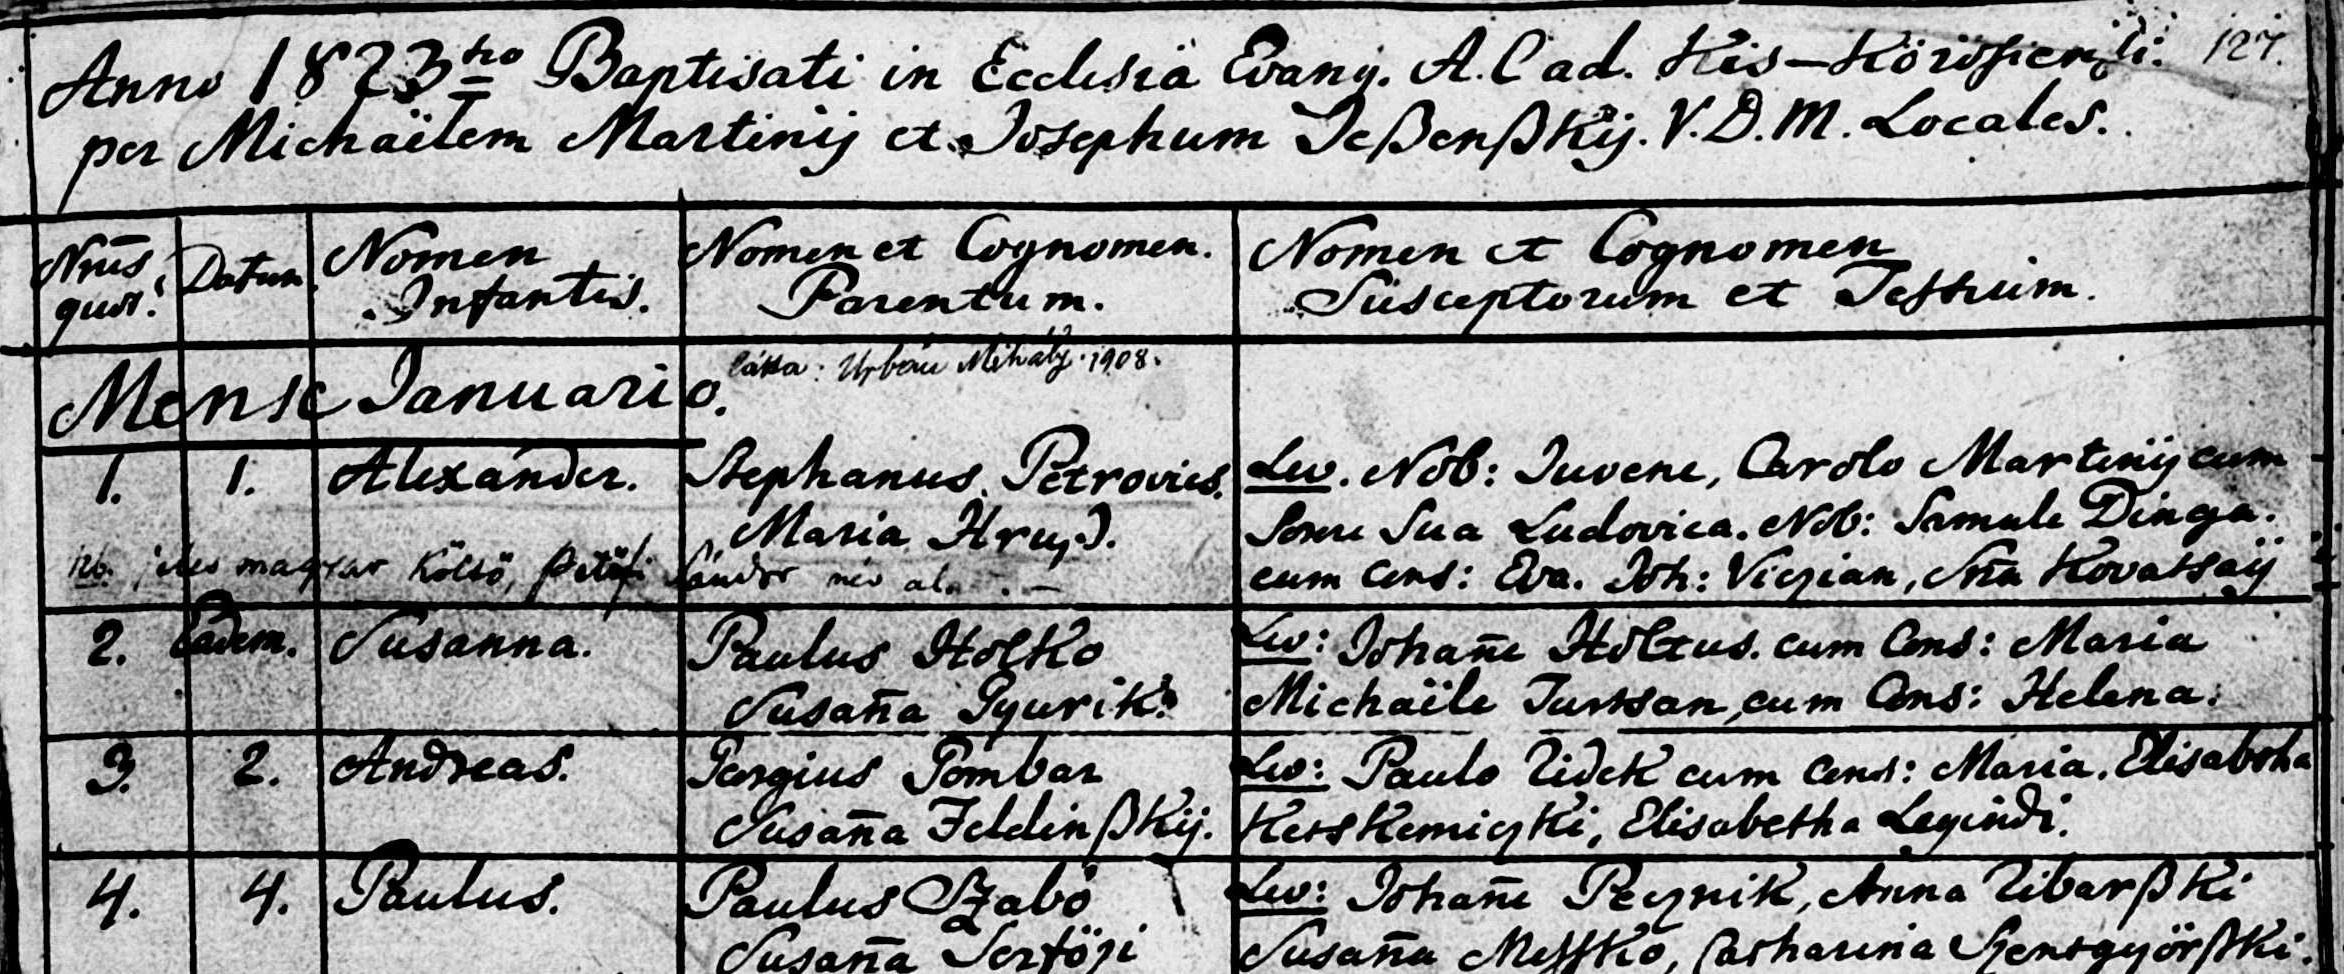 Anno 1823tio Baptisati in Ecclesiä Evang. A. C. ad. Kis-Körösiensi. 127.
per Michaëlem Martinij et Josephum Jeßenßkij. V. D. M. Locales.
Nrus Datum Nomen Nomen et Cognomen. Nomen et Cognomen
Infantis. Parentum. Susceptorum et Testium.
Mense Januario.
látta: Urbán Mihály. 1908.
1. 1. Alexander. Stephanus Petrovics. Lev. Nob: Juvene, Carolo Martinij cum
Maria Hruz. Sorore Sua Ludovica. Nob: Samule Dinga.
Nb. jeles magyar költő, Petőfi Sándor név al. cum Cons: Eva. Joh: Viczian, Kovatsaÿ
2. Eadem. Susanna. Paulus Holko Lev: Johañe Holtus. cum Cons: Maria
Susaña Gyurik. Michaële Turtsan, cum Cons: Helena.
3. 2. Andreas. Georgius Gombar Lev: Paulo Zidek cum Cons: Maria. Elisabetha
Susaña Feldinßkij. Ketskemiczki, Elisabetha Legindi.
4. 4. Paulus. Paulus Szabó Lev: Johañe Pecznik, Anna Zibarßki
Susaña Sertözi Susaña Catharina Szentgyörßki.